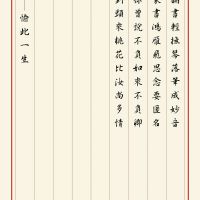 書輕撫琴落筆成妙音
書鴻雁飛思念要匿名
曾說不負如來不負卿
到頭來桃花比汝尚多情
——愉此一生